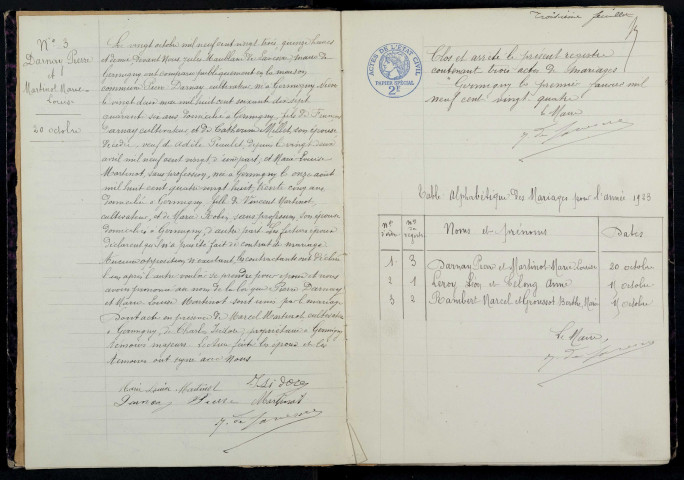 N° 3
Darnay Pierre
et
Martinot Marie-
Louise
20 octobre
Le vingt octobre mil neuf cent vingt trois, quinze heures
devant Nous, Jules maire de
Germigny ont comparu publiquement en la maison
commune Pierre Darnay, cultivateur né à Germigny, Nièvre
le vingt deux mars mil huit cent soixante dix sept
quarante six ans domicilié à Germigny, fils de François
Darnay cultivateur et de Catherine Millet, son épouse
décédés, veuf de Adèle depuis le vingt
avril mil neuf cent vingt d'une part, et Marie-Louise
Martinot, sans profession, née à Germigny le onze août
mil huit cent quatre vingt huit, trente cinq ans
domiciliée à Germigny fille de Vincent Martinot,
cultivateur, et de Marie Robin, sans profession, son épouse
domiciliés à Germigny d'autre part. Les futurs époux
déclarent qu'il n'a pas été fait de contrat de mariage
Aucune opposition n'existant, les contractants ont déclaré
l'un après l'autre vouloir se prendre pour époux et nous
avons prononcé au nom de la loi que Pierre Darnay
et Marie-Louise Martinot sont unis par le mariage
Dont acte en présence de Marcel Martinot cultivateur
à Germigny, de Charles Isidore, propriétaire à Germigny
témoins majeurs. Lecture faite les époux et les
témoins ont signé avec Nous.
Marie Louise Martinot Isidore
Darnay Pierre Martinot
Troisième feuillet
ACTES DE L'ÉTAT CIVIL
PAPIER SPÉCIAL
2F
Clos et arrêté le présent registre
contenant trois actes de mariages
à Germigny le premier janvier mil
neuf cent vingt quatre
Le Maire
Table Alphabétique des Mariages pour l'année 1923
N° d'ordre N° du registre Noms et prénoms Dates
1 3 Darnay Pierre et Martinot Marie Louise 20 octobre
2 1 Leroy Léon et Anna octobre
3 2 Rambert Marcel et Groussot Berthe Marie octobre
Le Maire